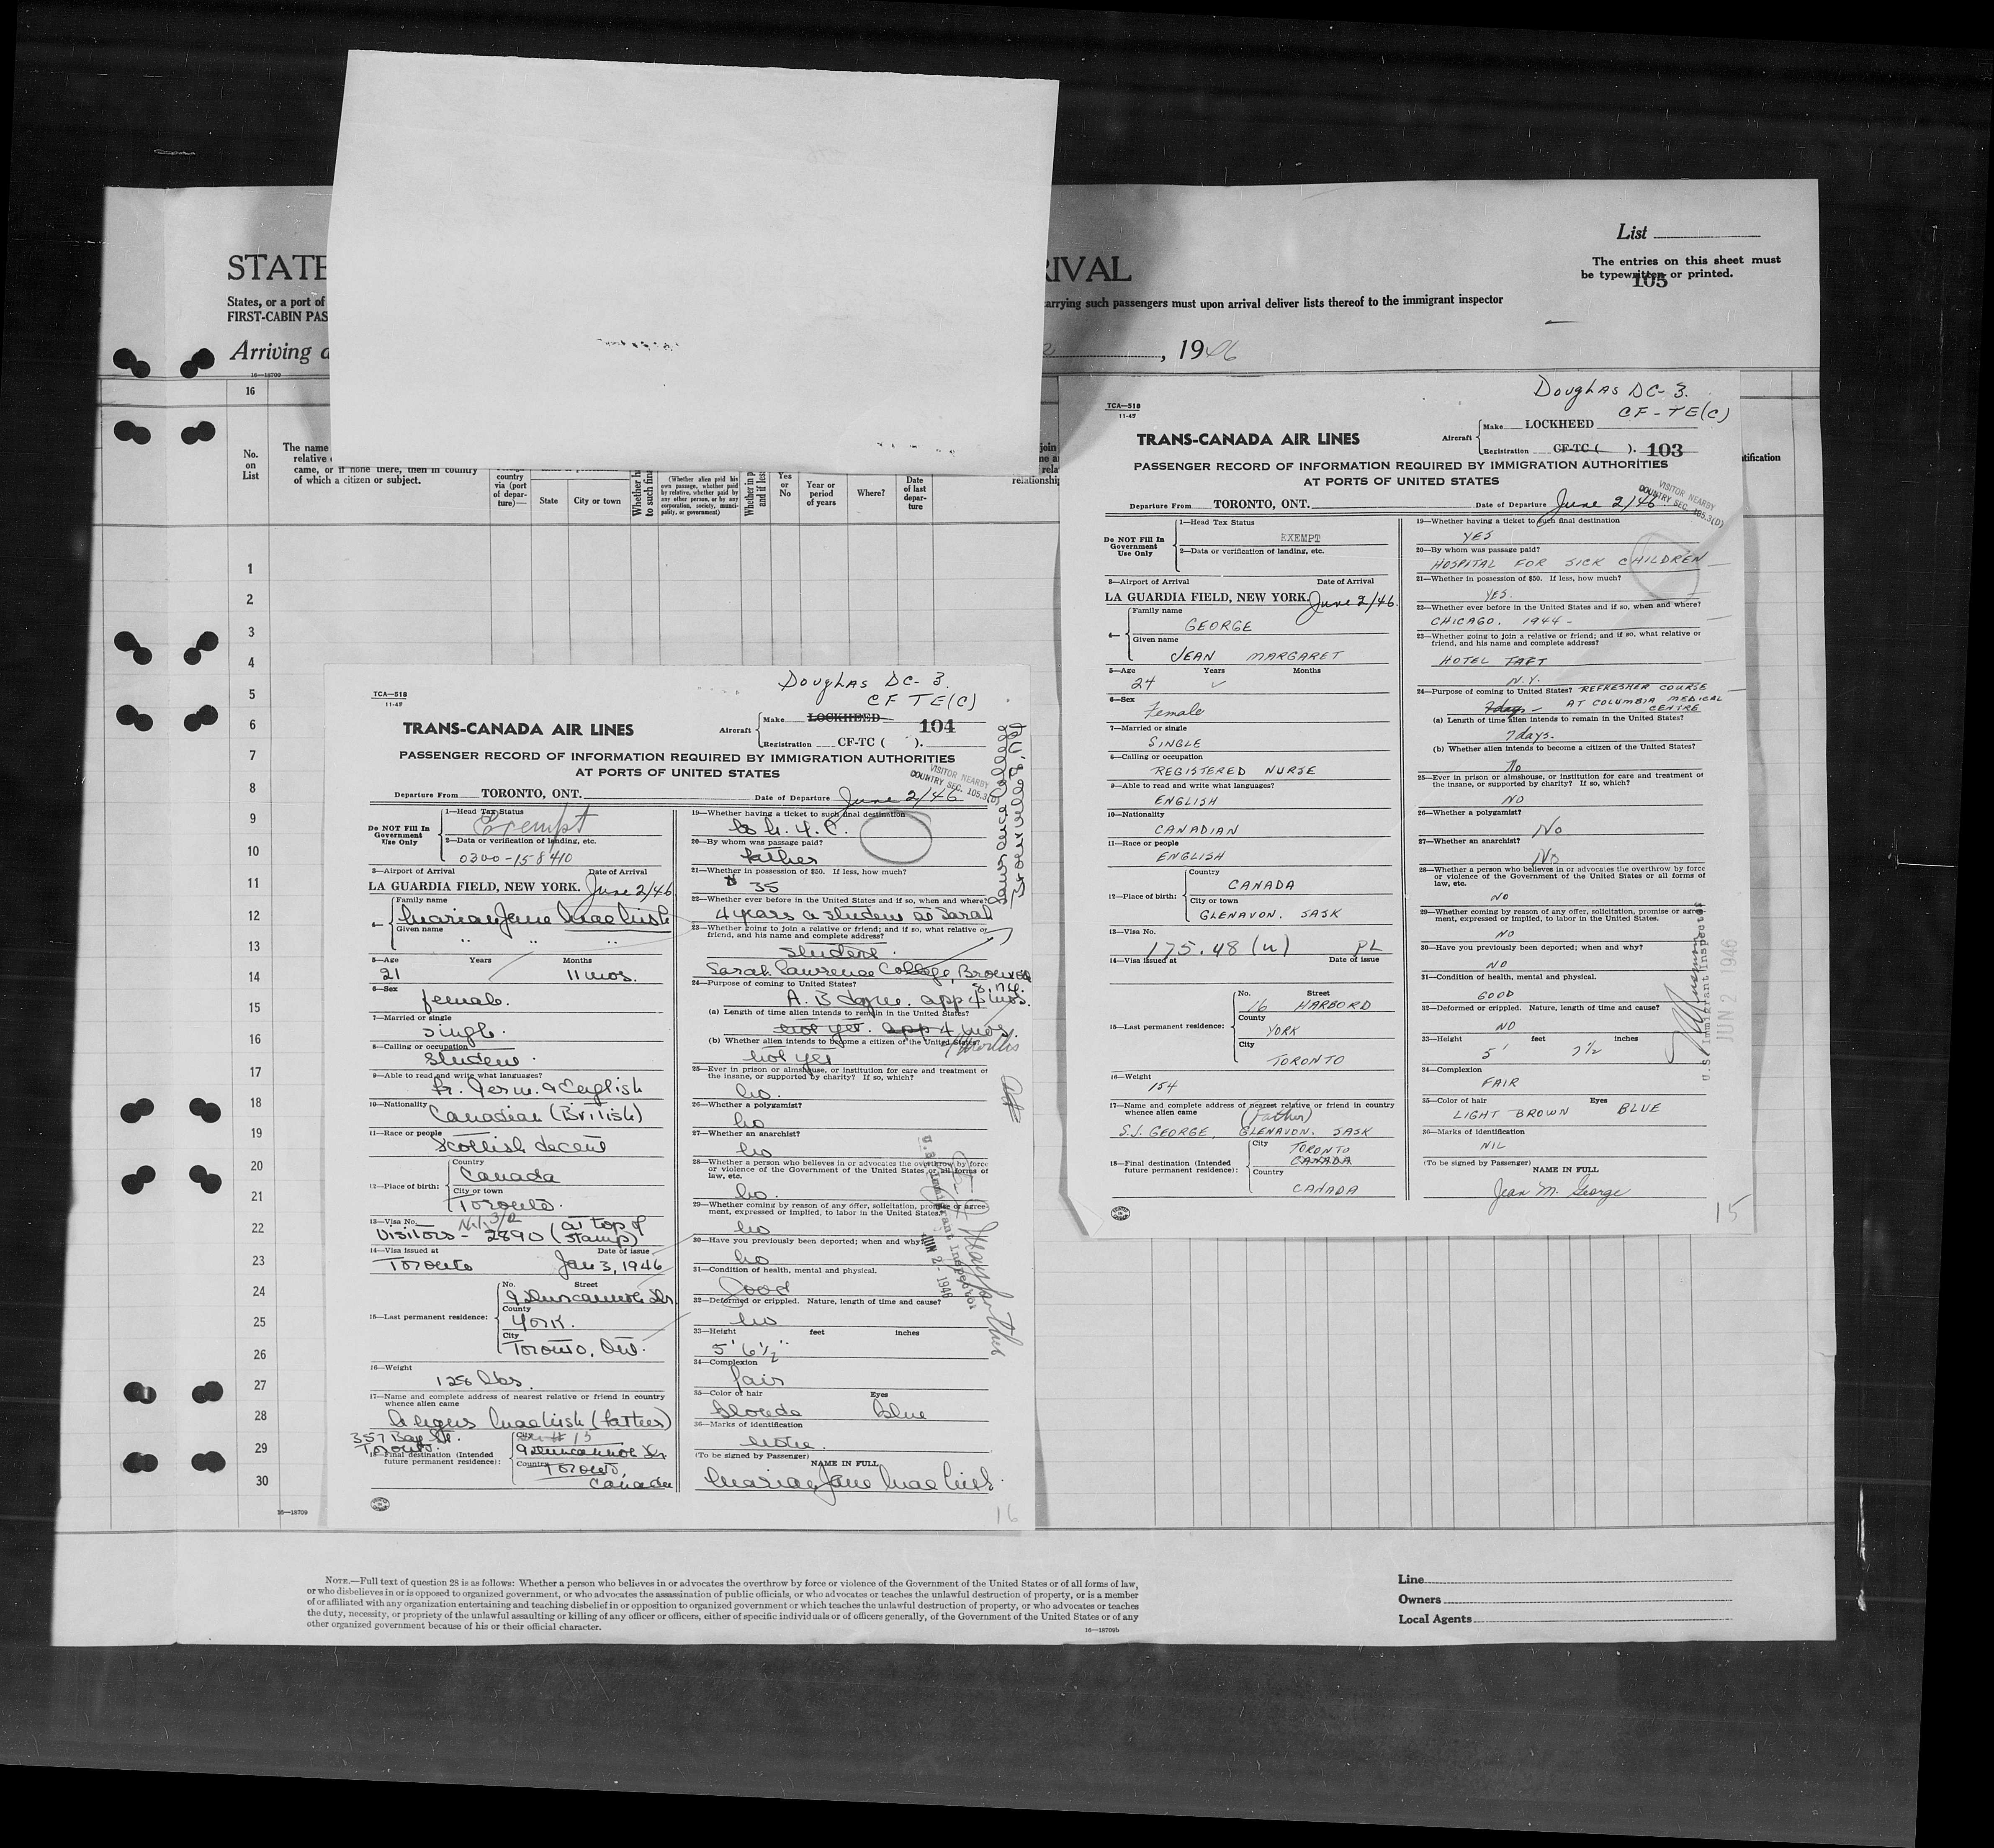 List
The entries on this sheet must
be typewritten or printed.
105
STATE
RIVAL
States, or a port of
arrying such passengers must upon arrival deliver lists thereof to the immigrant inspector
FIRST-CABIN PAS
Arriving a
, 1946
16—18709
16
No.
on
List
The name
relative
came, or if none there, then in country
of which a citizen or subject.
country
via (port
of depar-
ture)—
State
City or town
(Whether alien paid his
own passage, whether paid
by relative, whether paid by
any other person, or by any
corporation, society, munici-
pality, or government)
Yes
or
No
Year or
period
of years
Where?
Date
of last
depar-
ture
join
relationship
tification
1
2
3
4
5
6
7
8
9
10
11
12
13
14
15
16
17
18
19
20
21
22
23
24
25
26
27
28
29
30
16—18709
Douglas DC-3.
CF TE(C)
TCA—518
11-45
TRANS-CANADA AIR LINES
Aircraft
Make LOCKHEED
104
Registration CF-TC ( ).
PASSENGER RECORD OF INFORMATION REQUIRED BY IMMIGRATION AUTHORITIES
AT PORTS OF UNITED STATES
VISITOR NEARBY
COUNTRY SEC. 105.3(D)
Departure From TORONTO, ONT.
Date of Departure June 2/46
Do NOT Fill In
Government
Use Only
1—Head Tax Status
Exempt
2—Data or verification of landing, etc.
0300-15840
3—Airport of Arrival Date of Arrival
LA GUARDIA FIELD, NEW YORK. June 2/46
4—
Family name
Marian Jane
Given name
" " "
5—Age Years Months
21 11 mos.
6—Sex
female.
7—Married or single
single.
8—Calling or occupation
Student.
9—Able to read and write what languages?
Fr. Germ. & English
10—Nationality
Canadian (British)
11—Race or people
Scottish decent
12—Place of birth:
Country
Canada
City or town
Toronto.
13—Visa No.
Visitors - 2890 (at top of
stamp)
14—Visa Issued at Date of issue
Toronto Jan 3, 1946
15—Last permanent residence:
No. Street
9 Duncannon Dr.
County
York.
City
Toronto, Ont.
16—Weight
128 lbs.
17—Name and complete address of nearest relative or friend in country
whence alien came
(father)
357 Bay St.
Toronto.
18—Final destination (Intended
future permanent residence):
City
9 Duncannon Dr
Country
Toronto,
Canada
19—Whether having a ticket to such final destination
to N.Y.C.
20—By whom was passage paid?
father
21—Whether in possession of $50. If less, how much?
$ 35
22—Whether ever before in the United States and if so, when and where?
4 years a student at Sarah
Lawrence College
Bronxville, N.Y.
23—Whether going to join a relative or friend; and if so, what relative or
friend, and his name and complete address?
student.
Sarah Lawrence College, Bronxville
N.Y.
24—Purpose of coming to United States?
A. B degree. app 4 mos.
(a) Length of time alien intends to remain in the United States?
not yet. app 4 mos.
months
(b) Whether alien intends to become a citizen of the United States?
not yet
25—Ever in prison or almshouse, or institution for care and treatment of
the insane, or supported by charity? If so, which?
no.
26—Whether a polygamist?
no
27—Whether an anarchist?
no
28—Whether a person who believes in or advocates the overthrow by force
or violence of the Government of the United States or all forms of
law, etc.
no.
29—Whether coming by reason of any offer, solicitation, promise or agree-
ment, expressed or implied, to labor in the United States.
no
30—Have you previously been deported; when and why?
no
31—Condition of health, mental and physical.
Good
32—Deformed or crippled. Nature, length of time and cause?
no
33—Height feet inches
5' 6½"
34—Complexion
fair
35—Color of hair Eyes
blonde blue
36—Marks of identification
none.
(To be signed by Passenger)
NAME IN FULL
Marian Jane
U.S. Immigrant Inspector
JUN 2 - 1946
16
Douglas DC-3.
CF-TE(C)
TCA—518
11-45
TRANS-CANADA AIR LINES
Aircraft
Make LOCKHEED
Registration CF-TC ( ). 103
PASSENGER RECORD OF INFORMATION REQUIRED BY IMMIGRATION AUTHORITIES
AT PORTS OF UNITED STATES
VISITOR NEARBY
COUNTRY SEC. 105.3(D)
Departure From TORONTO, ONT.
Date of Departure June 2/46
Do NOT Fill In
Government
Use Only
1—Head Tax Status
EXEMPT
2—Data or verification of landing, etc.
3—Airport of Arrival Date of Arrival
LA GUARDIA FIELD, NEW YORK. June 2/46.
4—
Family name
GEORGE
Given name
JEAN MARGARET
5—Age Years Months
24
6—Sex
Female
7—Married or single
SINGLE
8—Calling or occupation
REGISTERED NURSE
9—Able to read and write what languages?
ENGLISH
10—Nationality
CANADIAN
11—Race or people
ENGLISH
12—Place of birth:
Country
CANADA
City or town
GLENAVON. SASK
13—Visa No.
175.48 (u) PL
14—Visa Issued at Date of issue
15—Last permanent residence:
No. Street
16 HARBORD
County
YORK
City
TORONTO
16—Weight
154
17—Name and complete address of nearest relative or friend in country
whence alien came
(Father)
S.J. GEORGE, GLENAVON. SASK
18—Final destination (Intended
future permanent residence):
City
TORONTO
CANADA
Country
CANADA
19—Whether having a ticket to such final destination
YES
20—By whom was passage paid?
HOSPITAL FOR SICK CHILDREN
21—Whether in possession of $50. If less, how much?
YES.
22—Whether ever before in the United States and if so, when and where?
CHICAGO. 1944 -
23—Whether going to join a relative or friend; and if so, what relative or
friend, and his name and complete address?
HOTEL TAFT
N.Y.
24—Purpose of coming to United States? REFRESHER COURSE
7 days - AT COLUMBIA MEDICAL
CENTRE
(a) Length of time alien intends to remain in the United States?
7 days.
(b) Whether alien intends to become a citizen of the United States?
No
25—Ever in prison or almshouse, or institution for care and treatment of
the insane, or supported by charity? If so, which?
NO
26—Whether a polygamist?
No
27—Whether an anarchist?
No
28—Whether a person who believes in or advocates the overthrow by force
or violence of the Government of the United States or all forms of
law, etc.
NO
29—Whether coming by reason of any offer, solicitation, promise or agree-
ment, expressed or implied, to labor in the United States.
NO
30—Have you previously been deported; when and why?
NO
31—Condition of health, mental and physical.
GOOD
32—Deformed or crippled. Nature, length of time and cause?
NO
33—Height feet inches
5' 7½
34—Complexion
FAIR
35—Color of hair Eyes
LIGHT BROWN BLUE
36—Marks of identification
NIL
(To be signed by Passenger)
NAME IN FULL
Jean M. George
U.S. Immigrant Inspector
JUN 2 1946
15
NOTE.—Full text of question 28 is as follows: Whether a person who believes in or advocates the overthrow by force or violence of the Government of the United States or of all forms of law,
or who disbelieves in or is opposed to organized government, or who advocates the assassination of public officials, or who advocates or teaches the unlawful destruction of property, or is a member
of or affiliated with any organization entertaining and teaching disbelief in or opposition to organized government or which teaches the unlawful destruction of property, or who advocates or teaches
the duty, necessity, or propriety of the unlawful assaulting or killing of any officer or officers, either of specific individuals or of officers generally, of the Government of the United States or of any
other organized government because of his or their official character.
16—18709b
Line
Owners
Local Agents